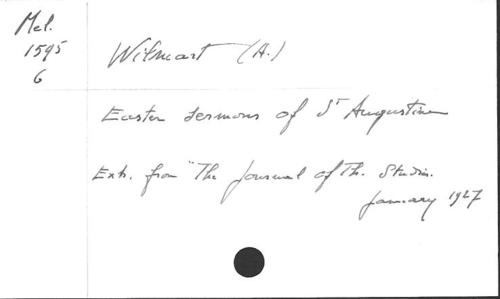 Mel.
1595
6
Wilmart (A.)
Easter sermons of St Augustine
Extr. from "The Journal of Th. Studies.
January 1927